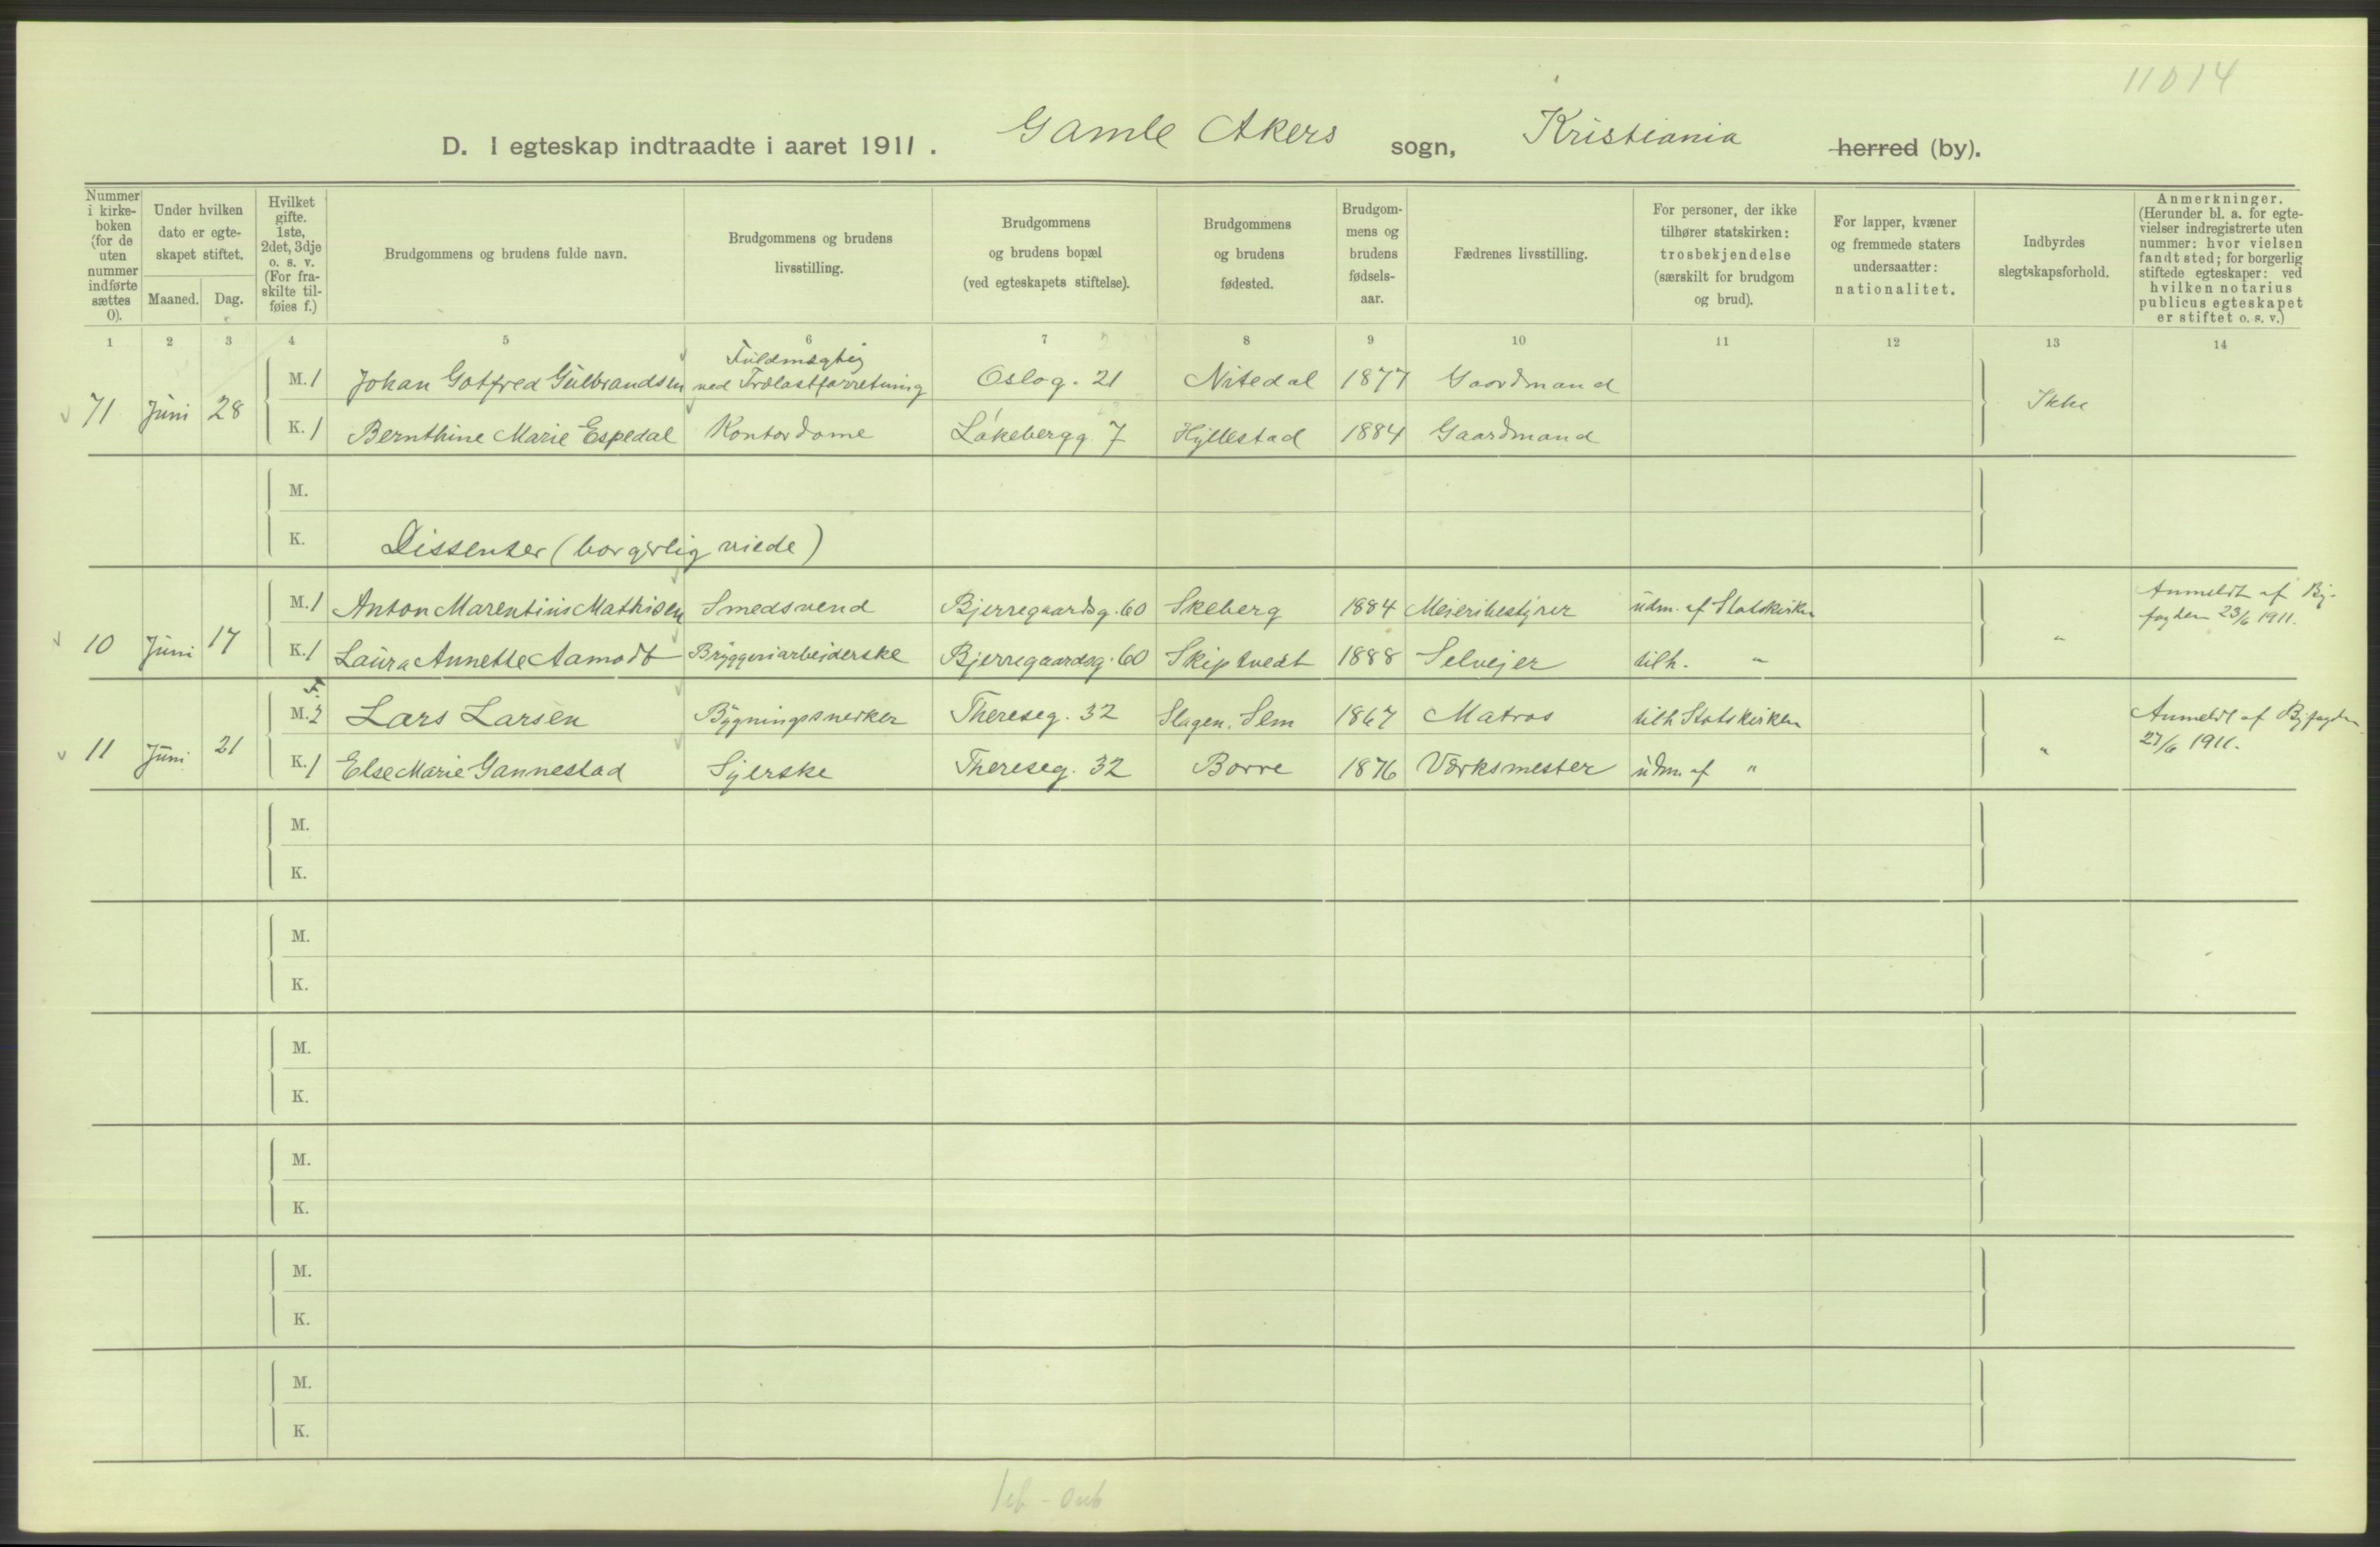 11014
D. I egteskap indtraadte i aaret 1911. Gamle Akers sogn, Kristiania herred (by).
Nummer i kirkeboken (for de uten nummer indførte sættes 0).
Under hvilken dato er egteskapet stiftet.
Maaned. Dag.
Hvilket gifte. 1ste, 2det, 3dje o. s. v. (For fraskilte tilføies f.)
Brudgommens og brudens fulde navn.
Brudgommens og brudens livsstilling.
Brudgommens og brudens bopæl (ved egteskapets stiftelse).
Brudgommens og brudens fødested.
Brudgommens og brudens fødselsaar.
Fædrenes livsstilling.
For personer, der ikke tilhører statskirken: trosbekjendelse (særskilt for brudgom og brud).
For lapper, kvæner og fremmede staters undersaatter: nationalitet.
Indbyrdes slegtskapsforhold.
Anmerkninger. (Herunder bl. a. for egtevielser indregistrerte uten nummer: hvor vielsen fandt sted; for borgerlig stiftede egteskaper: ved hvilken notarius publicus egteskapet er stiftet o. s. v.)
1 2 3 4 5 6 7 8 9 10 11 12 13 14
71 Juni 28
M. 1 Johan Gotfred Gulbrandsen Fuldmægtig ved Trælastforretning Oslog. 21 Nitedal 1877 Gaardmand
Ikke
K. 1 Bernthine Marie Espedal Kontordame Løkebergg. 7 Hyllestad 1884 Gaardmand
M.
K. Dissenter (borgerlig viede)
10 Juni 17
M. 1 Anton Marentius Mathisen Smedsvend Bjerregaardsg. 60 Skeberg 1884 Meieribestyrer udm. af Statskirken
" Anmeldt af By-
fogden 23/6 1911.
K. 1 Laura Annette Aamodt Bryggeriarbeiderske Bjerregaardsg. 60 Skiptvedt 1888 Selveier tilh. "
11 Juni 21
F.
M. 2 Lars Larsen Bygningssnekker Thereseg. 32 Slagen, Sem 1867 Matros tilh Statskirken
" Anmeldt af Byfogden
27/6 1911.
K. 1 Else Marie Gannestad Syerske Thereseg. 32 Borre 1876 Værksmester udm. af "
M.
K.
M.
K.
M.
K.
M.
K.
M.
K.
M.
K.